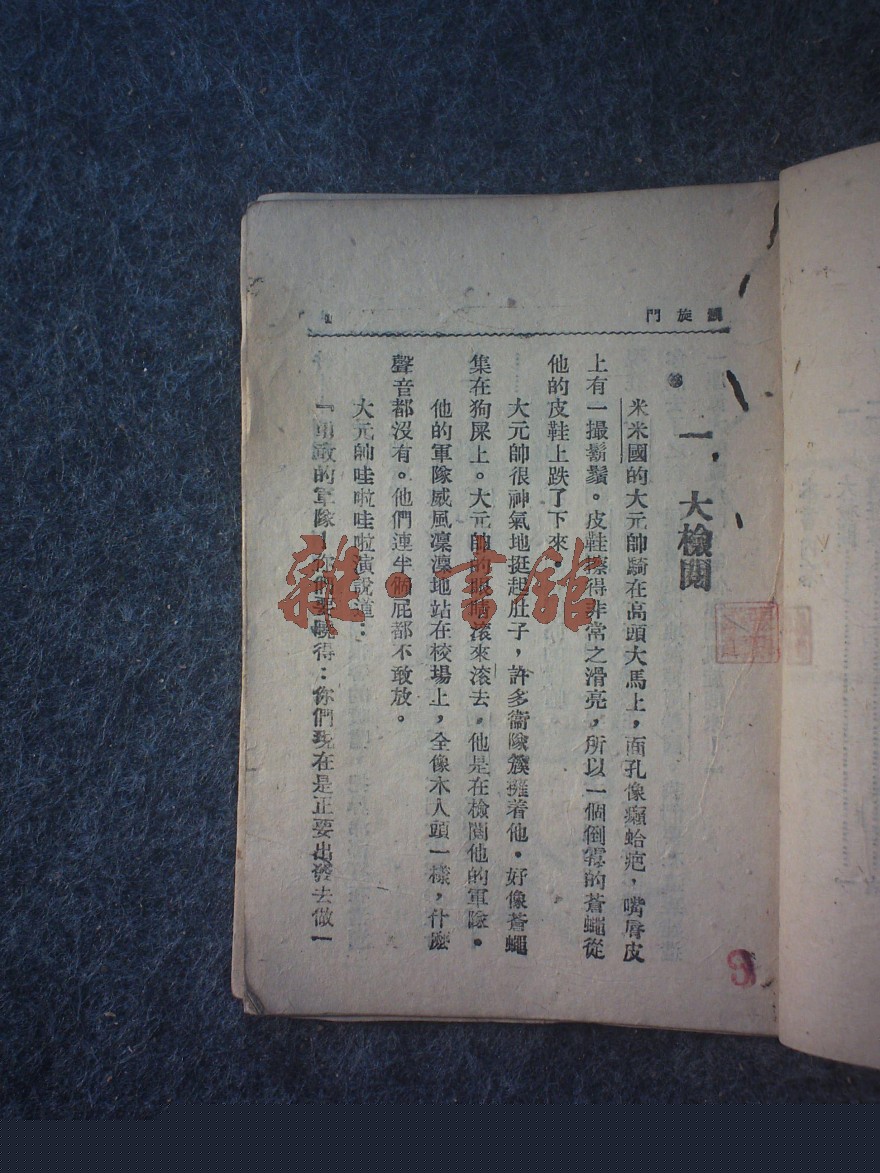 凱旋門
1
一，大檢閱
米米國的大元帥騎在高頭大馬上，面孔像癩蛤疤，嘴唇皮
上有一撮鬍鬚。皮鞋擦得非常之滑亮，所以一個倒霉的蒼蠅從
他的皮鞋上跌了下來。
大元帥很神氣地挺起肚子，許多衞隊簇擁着他。好像蒼蠅
集在狗屎上。大元帥的眼睛滚來滚去，他是在檢閱他的軍隊。
他的軍隊威風凜凜地站在校場上，全像木人頭一樣，什麽
聲音都沒有。他們連半個屁都不敢放。
大元帥哇啦哇啦演說道：
『勇敢的軍隊！你們要曉得：你們現在是正要出發去做一
雜·書舘
9